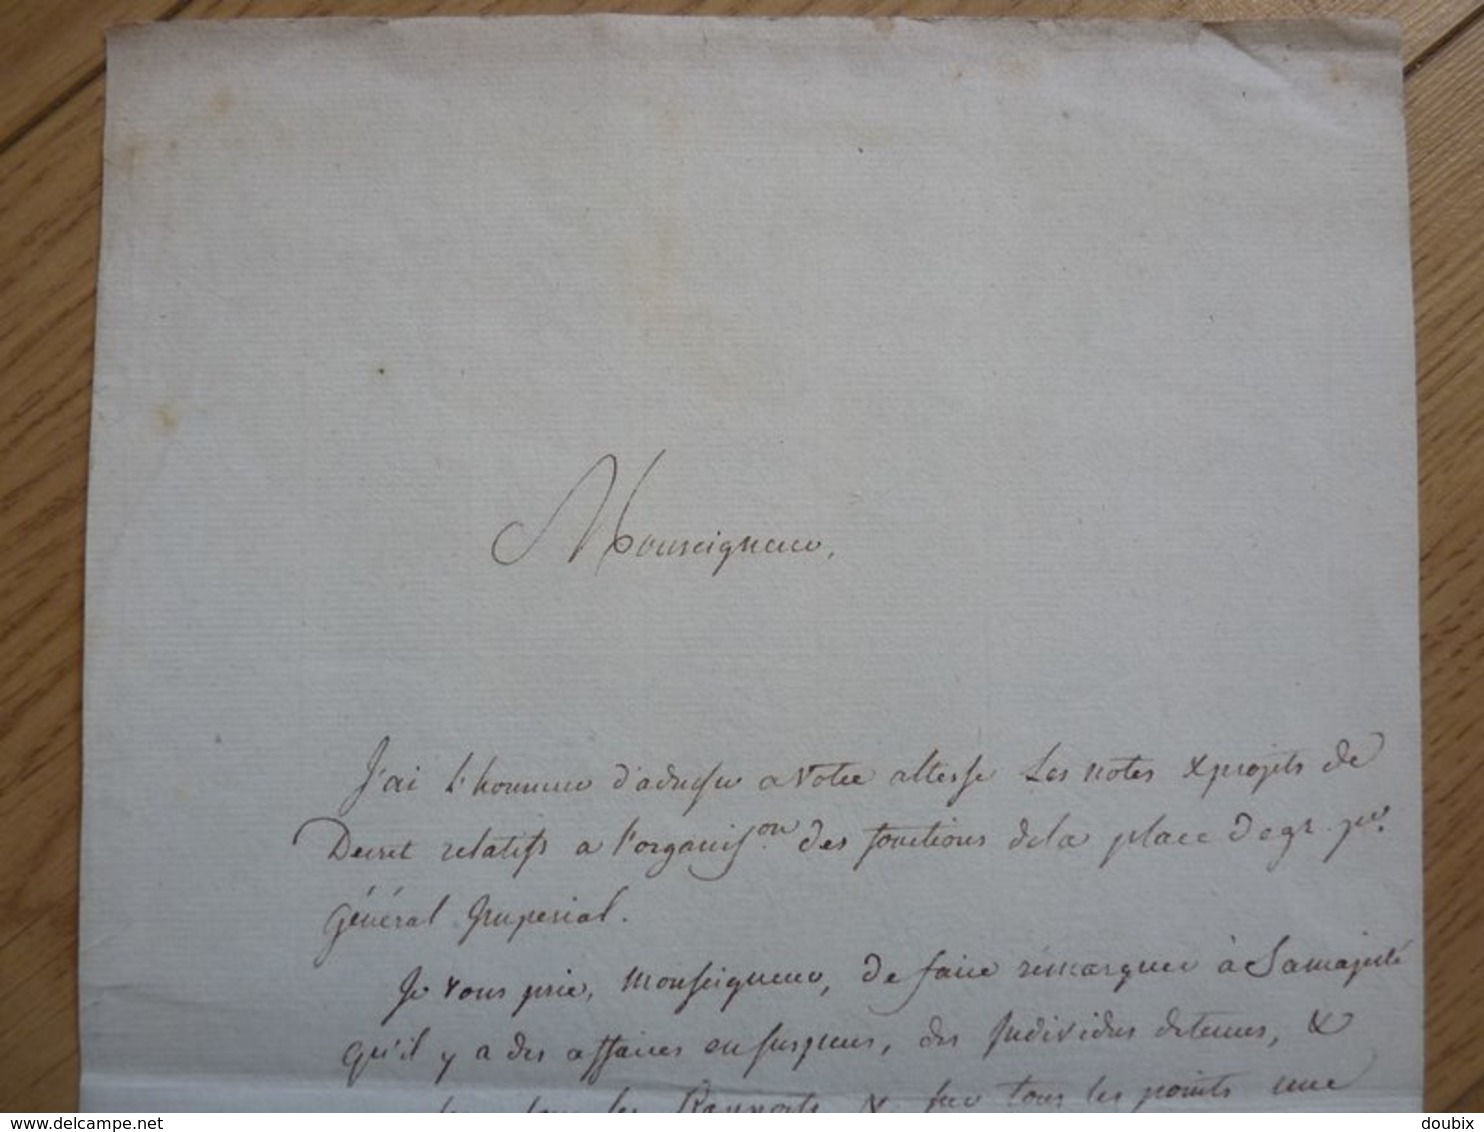 Monseigneur,
J'ai l'honneur d'adresser a Votre altesse Les notes & projets de
Decret relatifs a l'organis.on des fonctions dela place de gr. pr.
général Imperial.
Je vous prie, Monseigneur, de faire remarquer à Samajesté
qu'il y a des affaires en suspens, des Individus detenus, &
les Rapports & sur tous les points une
delcampe.net
doubix